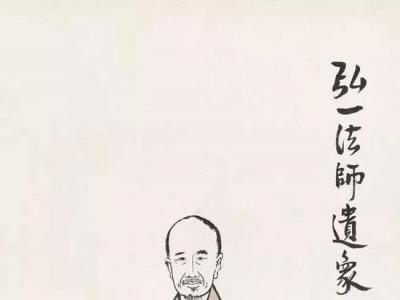 弘一法師遺象